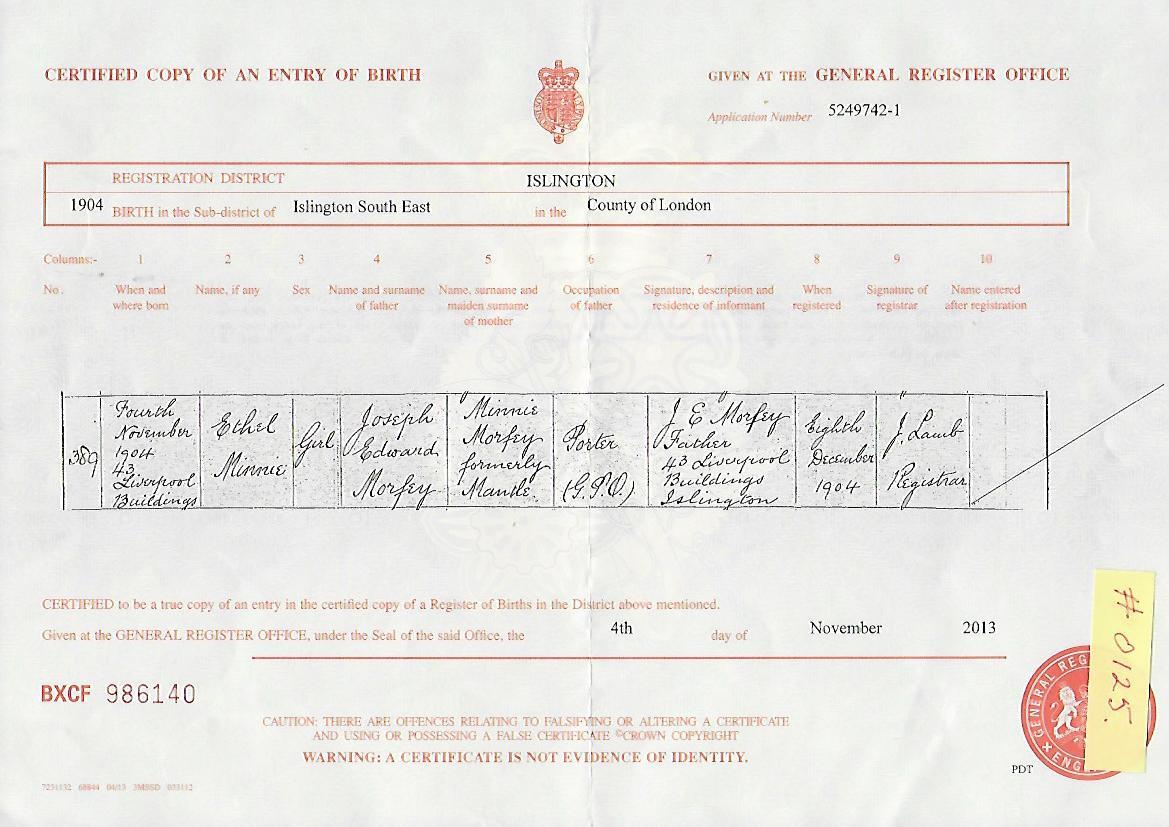 CERTIFIED COPY OF AN ENTRY OF BIRTH
GIVEN AT THE GENERAL REGISTER OFFICE
Application Number 5249742-1
REGISTRATION DISTRICT ISLINGTON
1904 BIRTH in the Sub-district of Islington South East in the County of London
Columns:- 1 2 3 4 5 6 7 8 9 10
No. When and where born
Name, if any
Sex
Name and surname of father
Name, surname and maiden surname of mother
Occupation of father
Signature, description and residence of informant
When registered
Signature of registrar
Name entered after registration
389
Fourth
November
1904
43
Liverpool
Buildings
Ethel
Minnie
Girl
Joseph
Edward
Morfey
Minnie
Morfey
formerly
Mande
Porter
(G.P.O.)
J E Morfey
Father
43 Liverpool
Buildings
Islington
Eighth
December
1904
J. Lamb
Registrar
CERTIFIED to be a true copy of an entry in the certified copy of a Register of Births in the District above mentioned.
Given at the GENERAL REGISTER OFFICE, under the Seal of the said Office, the 4th day of November 2013
BXCF 986140
CAUTION: THERE ARE OFFENCES RELATING TO FALSIFYING OR ALTERING A CERTIFICATE
AND USING OR POSSESSING A FALSE CERTIFICATE ©CROWN COPYRIGHT
WARNING: A CERTIFICATE IS NOT EVIDENCE OF IDENTITY.
GENERAL REG
ENG
# 0125.
PDT
7251132 68844 04/13 3MSSD 033112